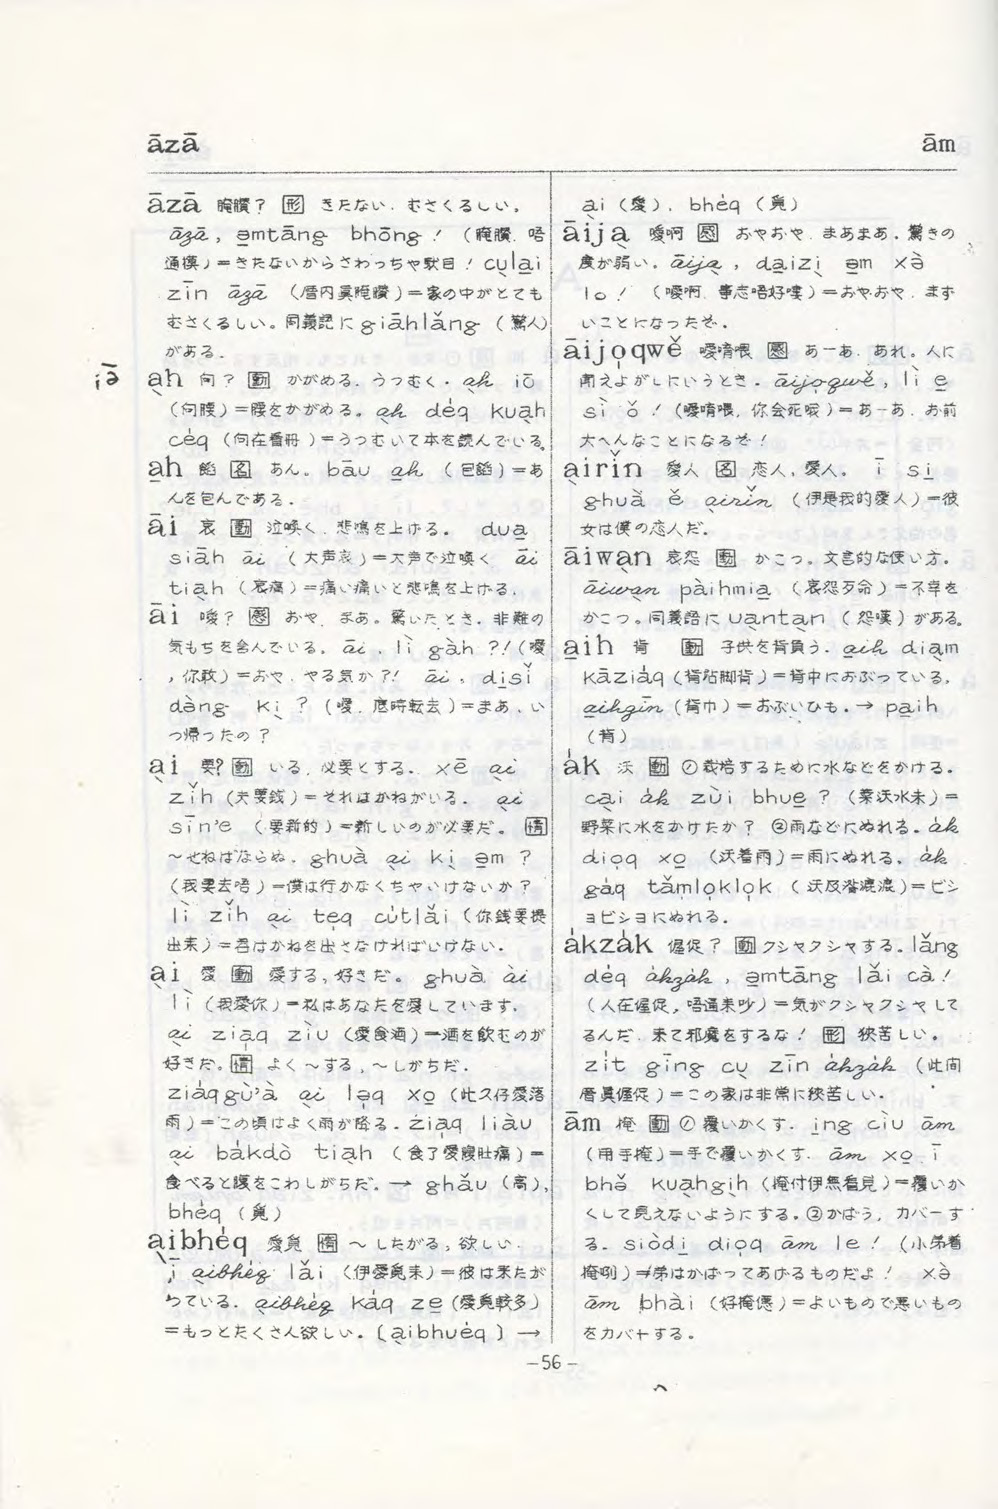 āzā
ām
āzā 腌臢？ 形 きたない．むさくるしい。
āzā, ə̱mtāng bhōng！（腌臢．唔
通摸）＝きたないからさわっちや駄目！ cu̱lai
zīn āzā （厝内真腌臢）＝家の中がとても
むさくるしい。同義語に giāhlǎng （驚人）
がある．
a̱h 向？ 動 かがめる．うつむく． a̱h iō
（向腰）＝腰をかがめる。 a̱h dėq kua̱h
cėq （向在看冊）＝うつむいて本を読んでいる。
a̱h 餡 名 あん。 bāu a̱h （包餡）＝あ
んを包んである．
āi 哀 動 泣喚く．悲鳴を上げる． dua̱
siāh āi （大声哀）＝大声で泣喚く āi
tia̱h （哀痛）＝痛い痛いと悲鳴を上げる．
āi 噯？ 感 おや．まあ。驚いたとき．非難の
気もちを含んでいる。 āi , lì gàh ?!（噯
，你敢）＝おや．やる気か？！ āi , di̱sǐ
dàng ki̱ ？（噯．底時転去）＝まあ、い
つ帰ったの？
a̱i 要？ 動 いる．必要とする． xē a̱i
zǐh （夫要銭）＝それはかねがいる． a̱i
sīn'e （要新的）＝新しいのが必要だ。 情
～せねばならぬ． ghuà a̱i ki̱ ə̱m ?
（我要去唔）＝僕は行かなくちゃいけないか？
lì zǐh a̱i teq cu̇tlǎi （你銭要提
出来）＝君はかねを出さなければいけない．
a̱i 愛 動 愛する，好きだ。 ghuà a̱i
lì （我愛你）＝私はあなたを愛しています．
a̱i ziaq ziù （愛食酒）＝酒を飲むのが
好きだ。 情 よく～する，～しがちだ．
ziaqgù'à a̱i lȯq xo̱ （此久仔愛落
雨）＝この頃はよく雨が降る． ziaq liàu
a̱i bakdò tia̱h （食了愛腹肚痛）＝
食べると腹をこわしがちだ．→ ghǎu （高），
bhėq （覓）
a̱ibhėq 愛覓 情 ～したがる，欲しい．
ī a̱ibhėq lǎi （伊愛覓来）＝彼は来たが
っている． a̱ibhėq kaq ze̱ （愛覓較多）
＝もっとたくさん欲しい。〔a̱ibhuėq〕→
a̱i （愛）．bhėq （覓）
āija̱ 噯啊 感 おやおや．まあまあ．驚きの
度が弱い． āija̱ , da̱izi̱ ə̱m xə̀
lo！（噯啊．事志唔好嘍）＝おやおや．まず
いことになったぞ．
āijo̱qwě 噯唷喂 感 あーあ．あれ。人に
聞えよがしにいうとき． āijo̱qwě , lì e̱
sì ò！（噯唷喂，你会死哦）＝あーあ．お前
大へんなことになるぞ！
a̱irǐn 愛人 名 恋人，愛人。 ī si̱
ghuà ě a̱irǐn （伊是我的愛人）＝彼
女は僕の恋人だ．
āiwa̱n 哀怨 動 かこつ。文言的な使い方．
āiwa̱n pàihmia̱ （哀怨歹命）＝不幸を
かこつ。同義語に ua̱nta̱n （怨嘆）がある。
a̱ih 背 動 子供を背負う． a̱ih diam
kāziaq （背站脚脊）＝背中におぶっている．
a̱ihgīn （背巾）＝おぶいひも．→ pa̱ih
（背）
ak 沃 動 ①栽培するために水などをかける．
ca̱i ak zùi bhue̱ ? （菜沃水未）＝
野菜に水をかけたか？ ②雨などにぬれる． ak
dioq xo̱ （沃着雨）＝雨にぬれる． ak
gaq tǎmlo̱klo̱k （沃及澹漉漉）＝ビシ
ョビショにぬれる．
akzak 偓促？ 動 クシャクシャする。 lǎng
dėq akzak , ə̱mtāng lǎi cà！
（人在偓促，唔通来吵）＝気がクシャクシャして
るんだ．来て邪魔をするな！ 形 狭苦しい．
zit gīng cu̱ zīn akzak （此間
厝真偓促）＝この家は非常に狭苦しい．
ām 掩 動 ①覆いかくす． i̱ng ciù ām
（用手掩）＝手で覆いかくす． ām xo̱ ī
bhə̌ kua̱hgi̱h （掩付伊無看見）＝覆いか
くして見えないようにする。②かばう，カバーす
る． siòdi̱ dioq ām le！（小弟着
掩咧）＝弟はかばってあげるものだよ！ xə̀
ām bhài （好掩僫）＝よいもので悪いもの
をカバーする．
iə̄
－56－